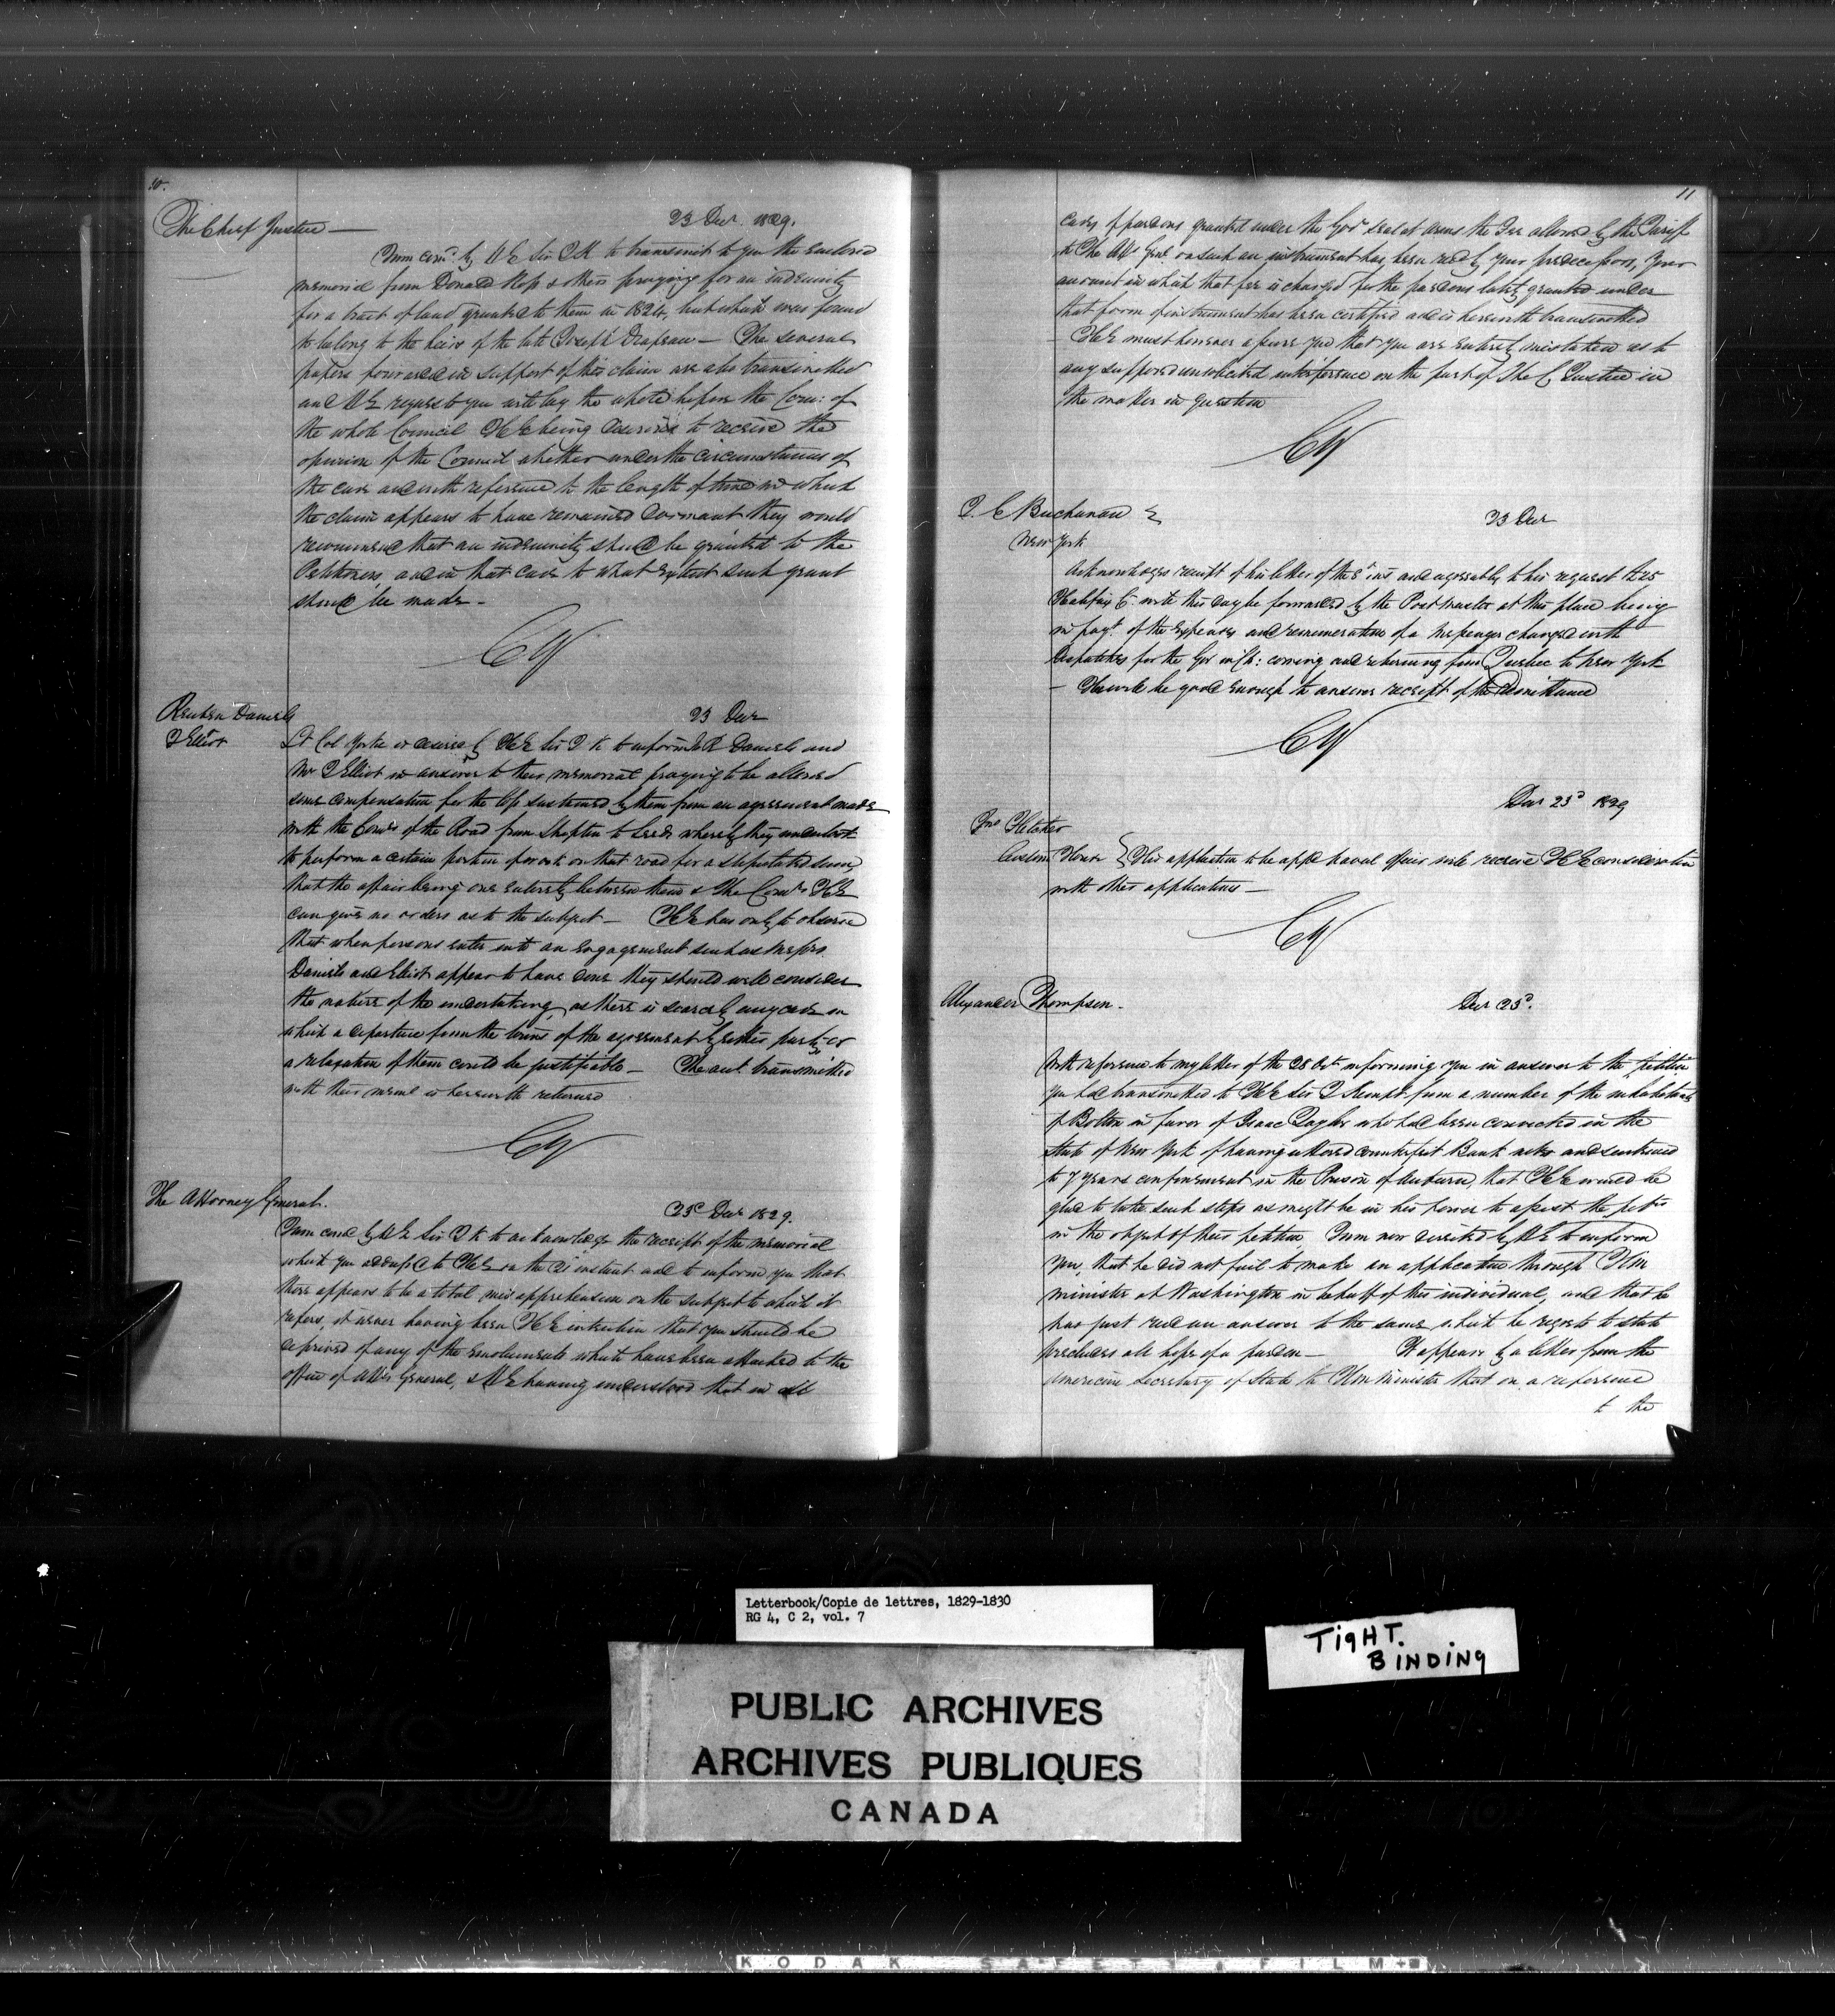 10.
The Chief Justice —
23 Decr 1829.
I am comd by H E Sir J K to transmit to you the enclosed
memorial from Donald & others praying for an indemnity
for a tract of land granted to them in 1824, but which was found
to belong to the heirs of the late Joseph Drapeau — The several
papers forwarded in support of this claim are also transmitted
and H E requests you will lay the whole before the Com: of
the whole Council H E being desirous to receive the
opinion of the Council whether under the circumstances of
the case and with reference to the length of time in which
the claim appears to have remained dormant they would
recommend that an indemnity should be granted to the
Petitioners, and in that case to what extent such grant
should be made —
CY
Reuben Daniels
J Elliot
23 Decr
Lt Col Yorke is desired by H E Sir J K to inform Mr R Daniels and
Mr J Elliot in answer to their memorial praying to be allowed
some compensation for the loss sustained by them from an agreement made
with the Comrs of the Road from Shipton to Leeds whereby they undertook
to perform a certain portion of work on that road for a stipulated sum,
that the affair being one entirely between them & the Comrs H E
can give no orders as to the subject — H E has only to observe
that when persons enter into an engagement such as Messrs
Daniels and Elliot appear to have done they should well consider
the nature of the undertaking, as there is scarcely any case in
which a departure from the terms of the agreement by either party or
a relaxation of them could be justifiable — The acct transmitted
with their meml is herewith returned
CY
The Attorney General.
23d Decr 1829.
I am comd by H E Sir J K to acknowledge the receipt of the memorial
which you addressed to H E on the 21 instant and to inform you that
there appears to be a total misapprehension on the subject to which it
refers, it never having been H E intention that you should be
deprived of any of the emoluments which have been attached to the
office of Atty General, & H E having understood that in all
11
cases of pardons granted under the Govr seal at arms the Fee allowed by the Tariff
to the Atty Genl on such an instrument has been recd by your predecessors, your
account in which that fee is charged for the pardons lately granted under
that form of instrument has been certified and is herewith transmitted
— H E must however assure you that you are entirely mistaken as to
any supposed unsolicited interference on the part of the C Justice in
the matter in question
CY
J. C Buchanan
New York
23 Decr
Acknowledges receipt of his letter of the 8th inst and agreeably to his request £25
Halifax Cy will this day be forwarded by the Post master at this place being
in payt of the expenses and remuneration of a messenger charged with
Despatches for the Gov in Ch: coming and returning from Quebec to New York
— He will be good enough to answer receipt of the Remittance
CY
Decr 23d 1829
Jno Fletcher
Custom House } His application to be appd naval officer will receive H E consideration
with other applications —
CY
Alexander Thompson.
Decr 23d.
With reference to my letter of the 28 Oct informing you in answer to the petition
you had transmitted to H E Sir J Kempt from a number of the inhabitants
of Bolton in favor of Isaac Taylor who had been convicted in the
State of New York of having uttered counterfeit Bank notes and sentenced
to 7 years confinement in the Prison of Auburn, that H E would be
glad to take such steps as might be in his power to assist the petrs
in the object of their petition I am now directed by H E to inform
you, that he did not fail to make an application through H M
minister at Washington in behalf of this individual, and that he
has just recd an answer to the same, which he regrets to state
precludes all hope of a pardon — It appears by a letter from the
American Secretary of State to H M Minister that on a reference
to the
Letterbook/Copie de lettres, 1829-1830
RG 4, C 2, vol. 7
TigHT.
BINDINg
PUBLIC ARCHIVES
ARCHIVES PUBLIQUES
CANADA
KODAK SAFETY FILM